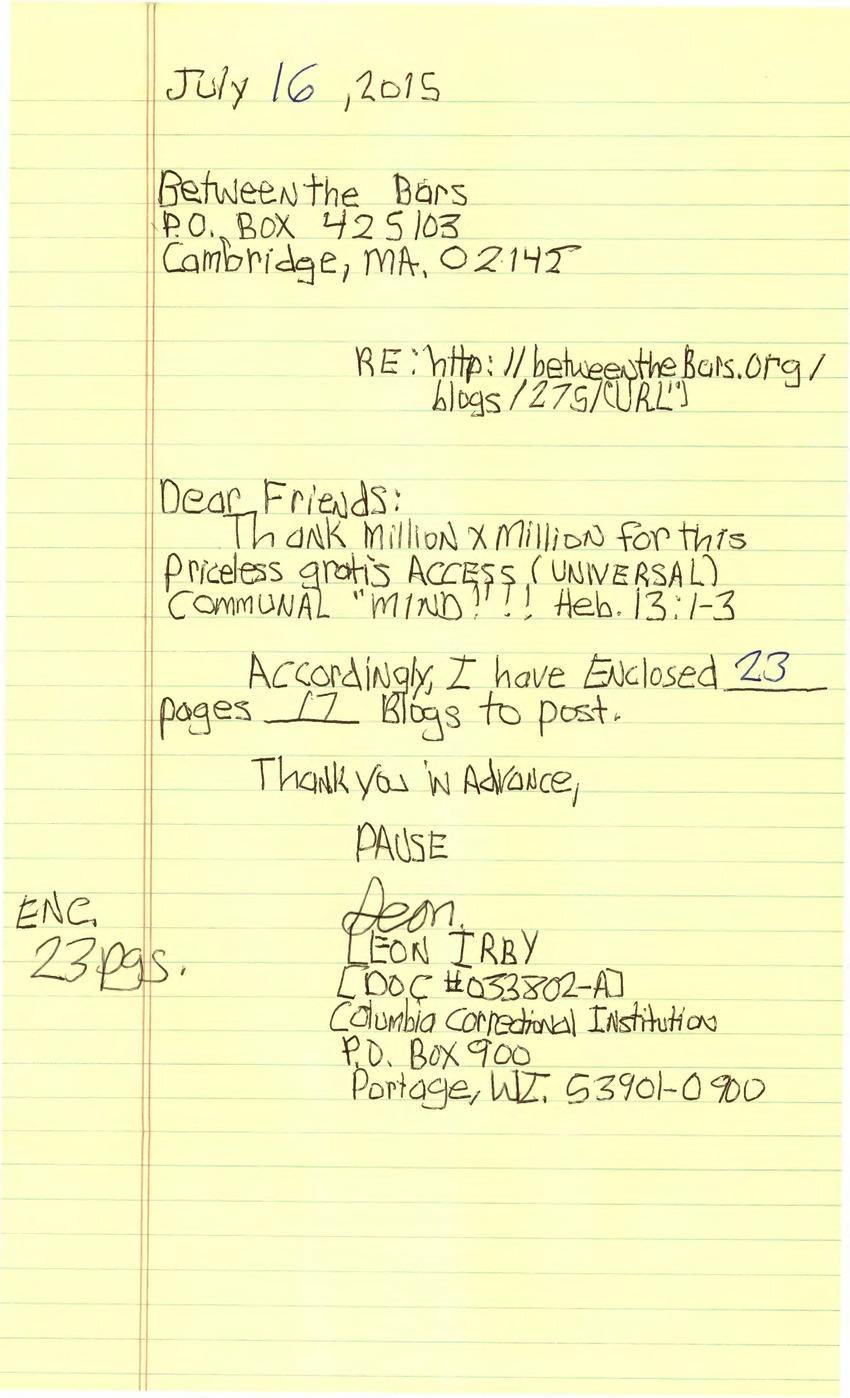 July 16, 2015
Between the Bars
P.O. BOX 425103
Cambridge, MA. 02142
RE: http://betweentheBars.org/
blogs/275/("URL")
Dear Friends:
Thank Million X Million for this
Priceless gratis ACCESS (UNIVERSAL)
COMMUNAL "MIND"!!! Heb. 13:1-3
Accordingly, I have Enclosed 23
pages 17 Blogs to post.
Thank you in Advance,
PAUSE
Leon
ENC.
23 pgs.
LEON IRBY
[DOC #033802-A]
Columbia Correctional Institution
P.O. BOX 900
Portage, WI. 53901-0900